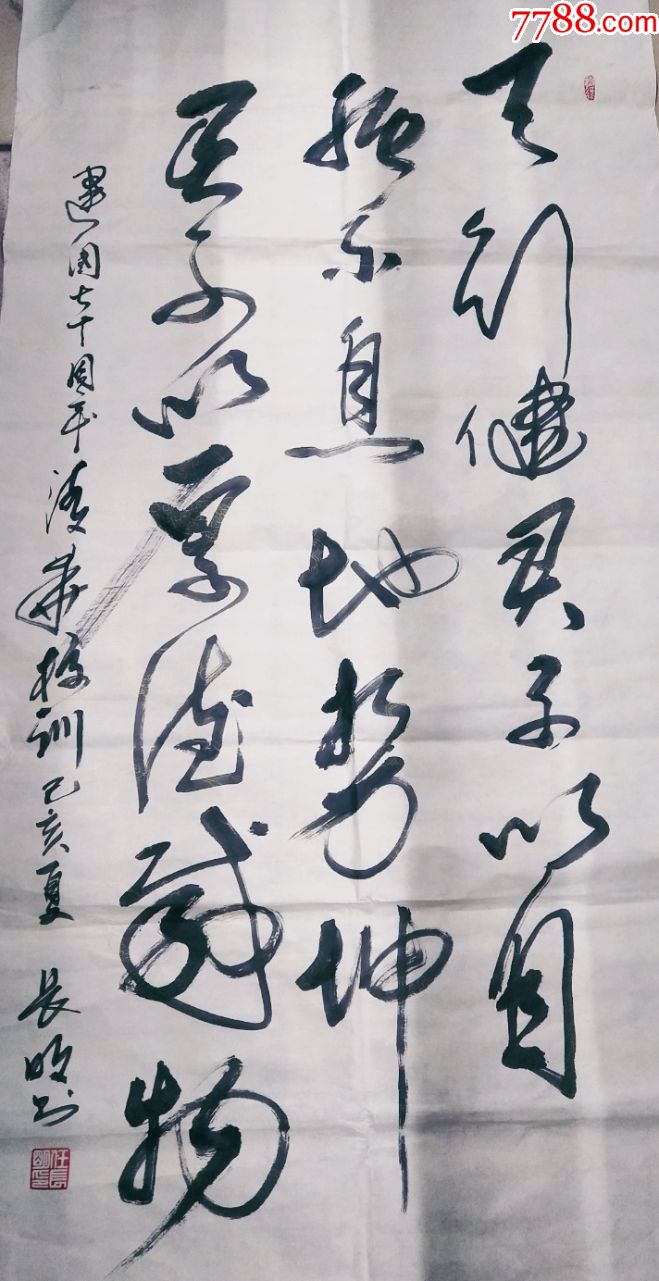 7788.com
天行健君子以自
强不息地势坤
君子以厚德载物
建国七十周年清华校训己亥夏 長明书
任長明印